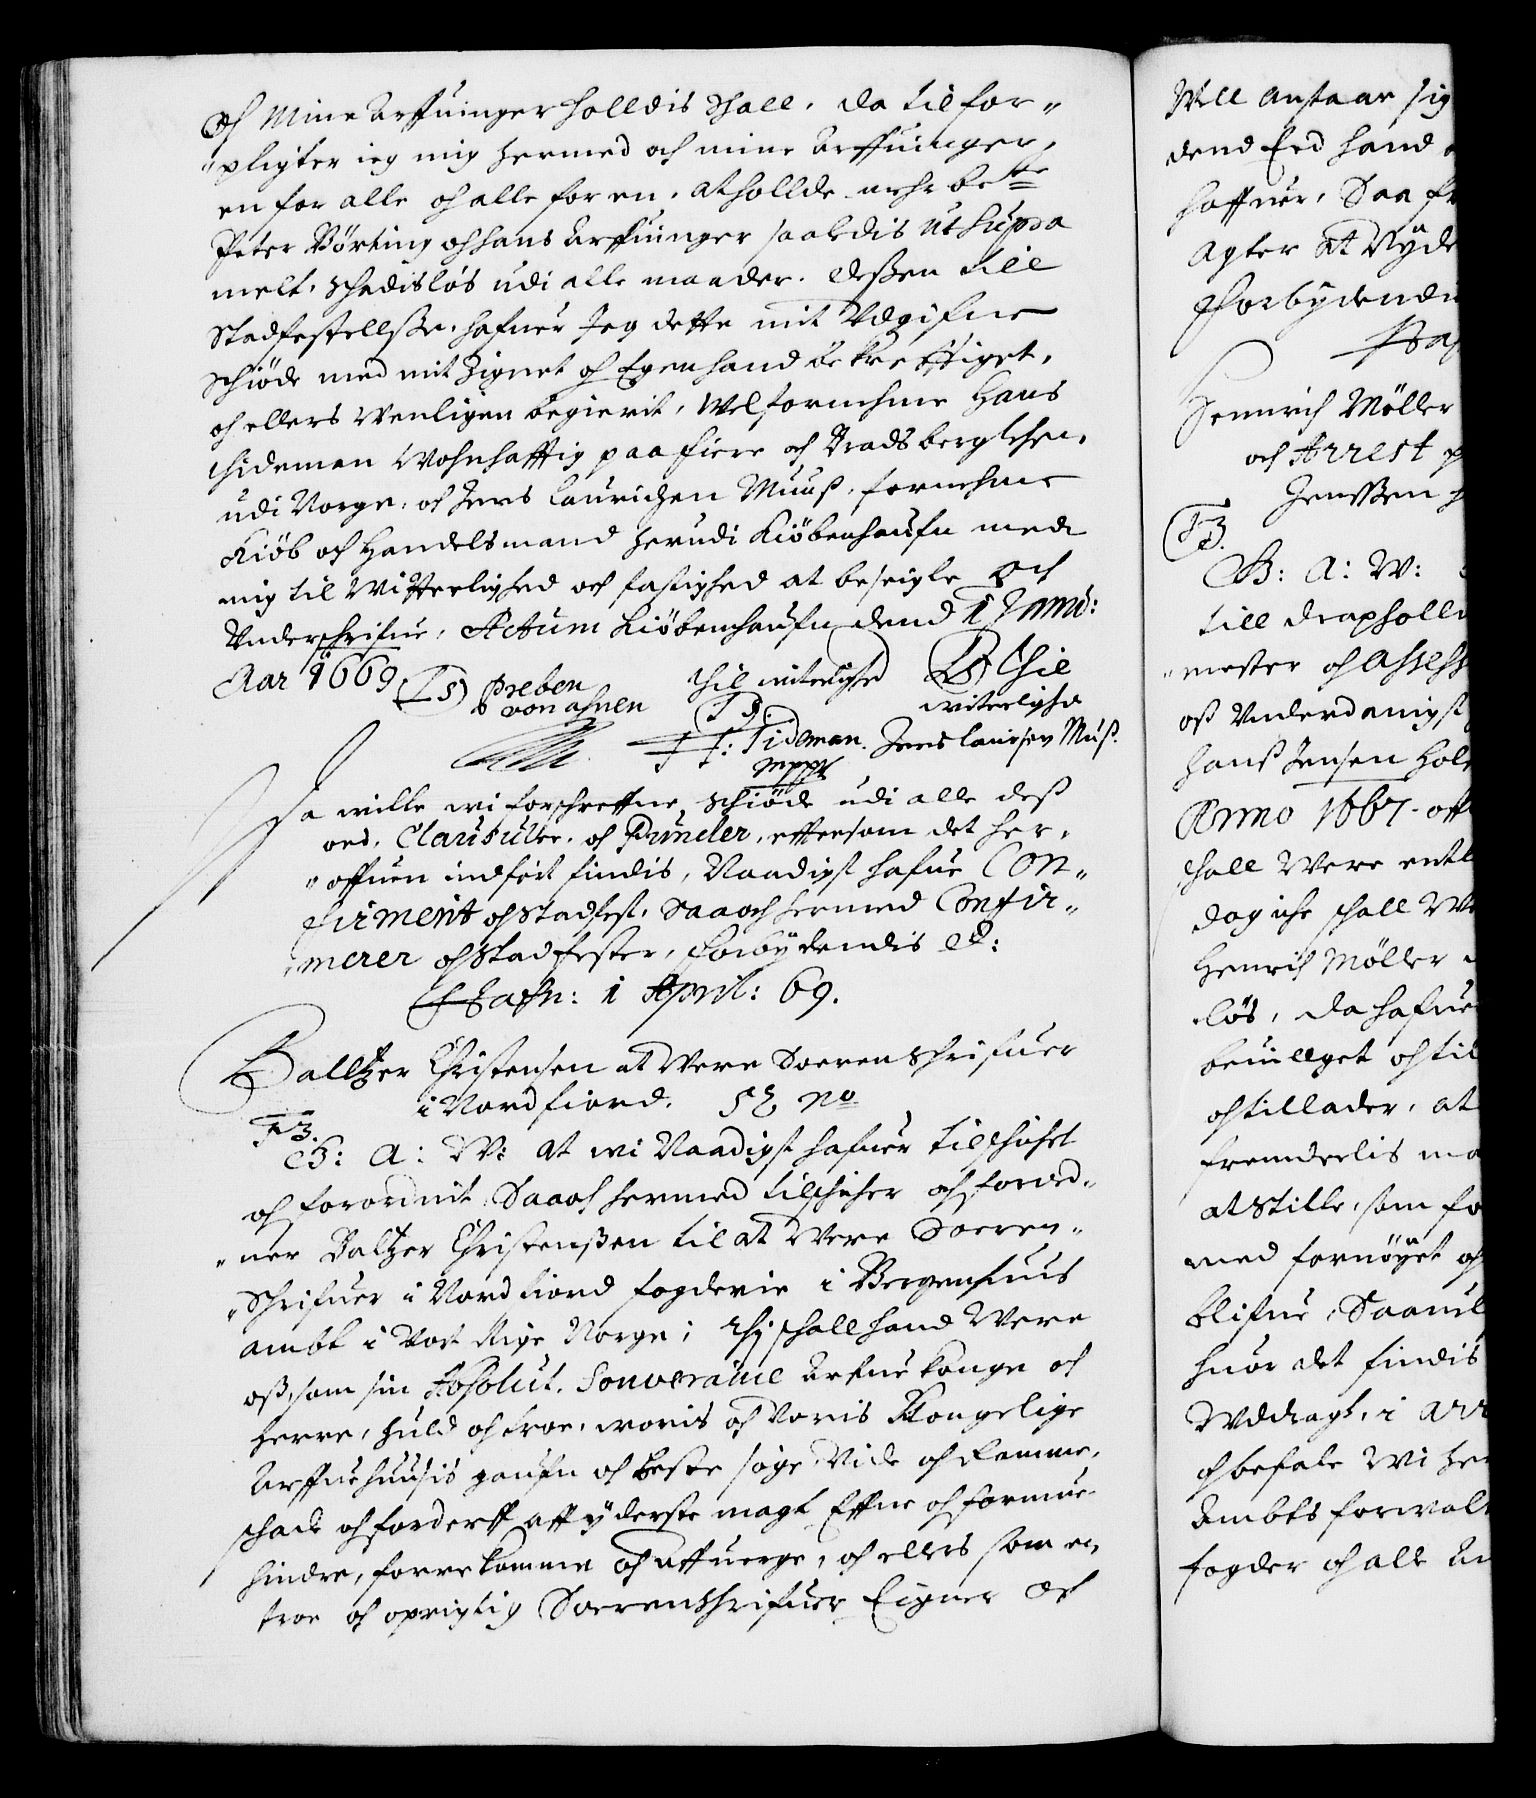 och Mine Arffuinger holldis schall. da tilfor„
„pligter ieg mig hermed och mine Arffuinger,
en for alle och alle for en. at hollde mehrbete
Peter Børting och hans Arffuinger saaledis ut supra
melt. schadisløs udi alle maader. dessen till
Stadfestellsse. hafuer Jeg dette mit Udgifne
Schiøde med mit Zignet och Egenhand bekreffiget,
och ellers wenligen begierit, Welfornehme Hans
Tideman Wohnhafftig paa Fiere och Bradsbergslehen,
udi Norge, och Jens Lauridzen Muus, fornehme
Kiøb och Handelsmand herudi Kiøbenhaufn med
mig til Witterlighed och fastighed at beseigle och
Underschrifue, Actum Kiøbenhaufn dend 1 Janu:
Aar 1669 (LS) Preben von Ahnen
Thil witerlighed H: Tideman. mppr
(LS) Thil witerlighed Jens Laursen Mus.
Da wille wi forschreffne Schiøde udi alle dess
ord. Clausuler. och Puncter, eftersom det her„
„offuen indført findis, Naadigst hafue Con„
firmerit och stadfest, Saa och hermed Confir„
„merer och Stadfester, forbydendis etc:
Hafn: 1 April: 69.
Balltzer Christensen at Were Sorenschrifuer
i Nordfiord. no
F3.
G: A: W: at wi Naadigst hafuer tilschichet
och forordnit, Saa och hermed tilschicher och forord„
„ner Baltzer Christenssen til at Were Soren„
„schrifuer i Nordfiord fogderie i Bergenhuus
ambt i Vort Rige Norge; Thj schall hand Were
oss, som sin Absolut. Souveraine Arfue Konge och
Herre, huld och troe, woris och Voris Kongelige
Arffuehuusis gaufn och beste søge Vide och Ramme,
schade och forderff aff yderste magt Effne och formue
hindre, forrekomme och affuerge, och ellers som en
troe och oprigtig Sorenschrifuer Eigner och
Well Anstaar sig
dend Eed hand
haffuer, Saa fr
agter at Nyde
Forbydendis
Henrich Møller
och Arrest p
Jenssen
F3.
G: A: W:
till
„mester och Assess
oss Underdanigst
Hans Jensen Hol
Anno 1667. off
schall Were entl
dog iche schall We
Henrich Møller
løs, da hafue
beuillget och til
och tillader, at
fremdeelis ma
at Stille, som fo
med fornøyet och
blifue, Saauel
huor det findis
Uddragt, i Arr
och befale Wi her
Ambtsforwalt
fogder och alle An